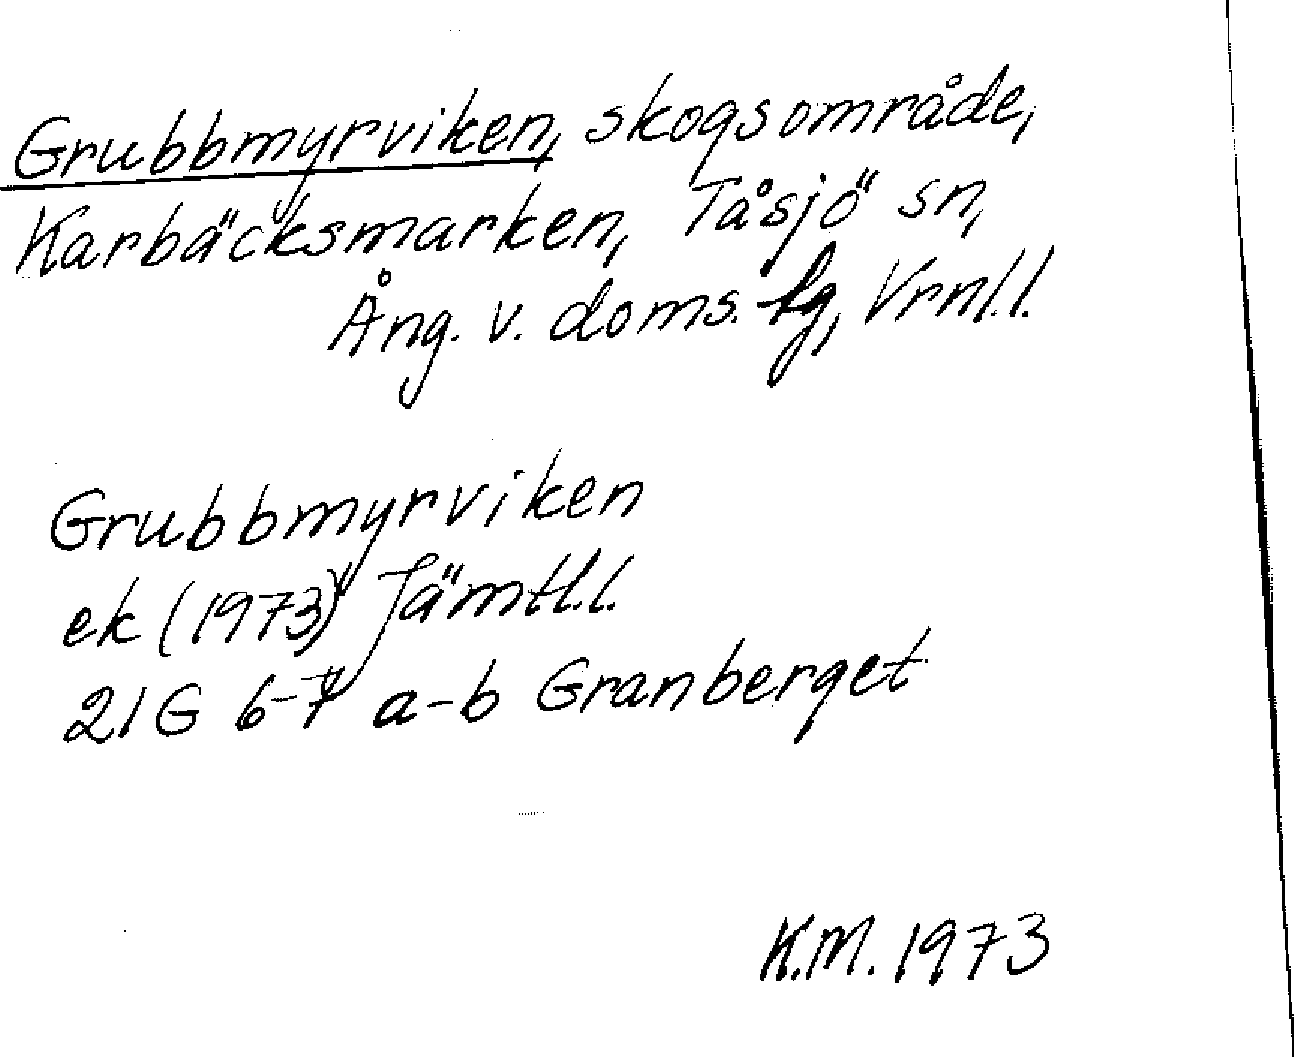 Grubbmyrviken, skogsområde,
Karbäcksmarken, Tåsjö sn,
Ång. v. doms. fg, Vrnl.l.
Grubbmyrviken
ek (1973) Jämtl.l.
21G 6-7 a-b Granberget
K.M. 1973